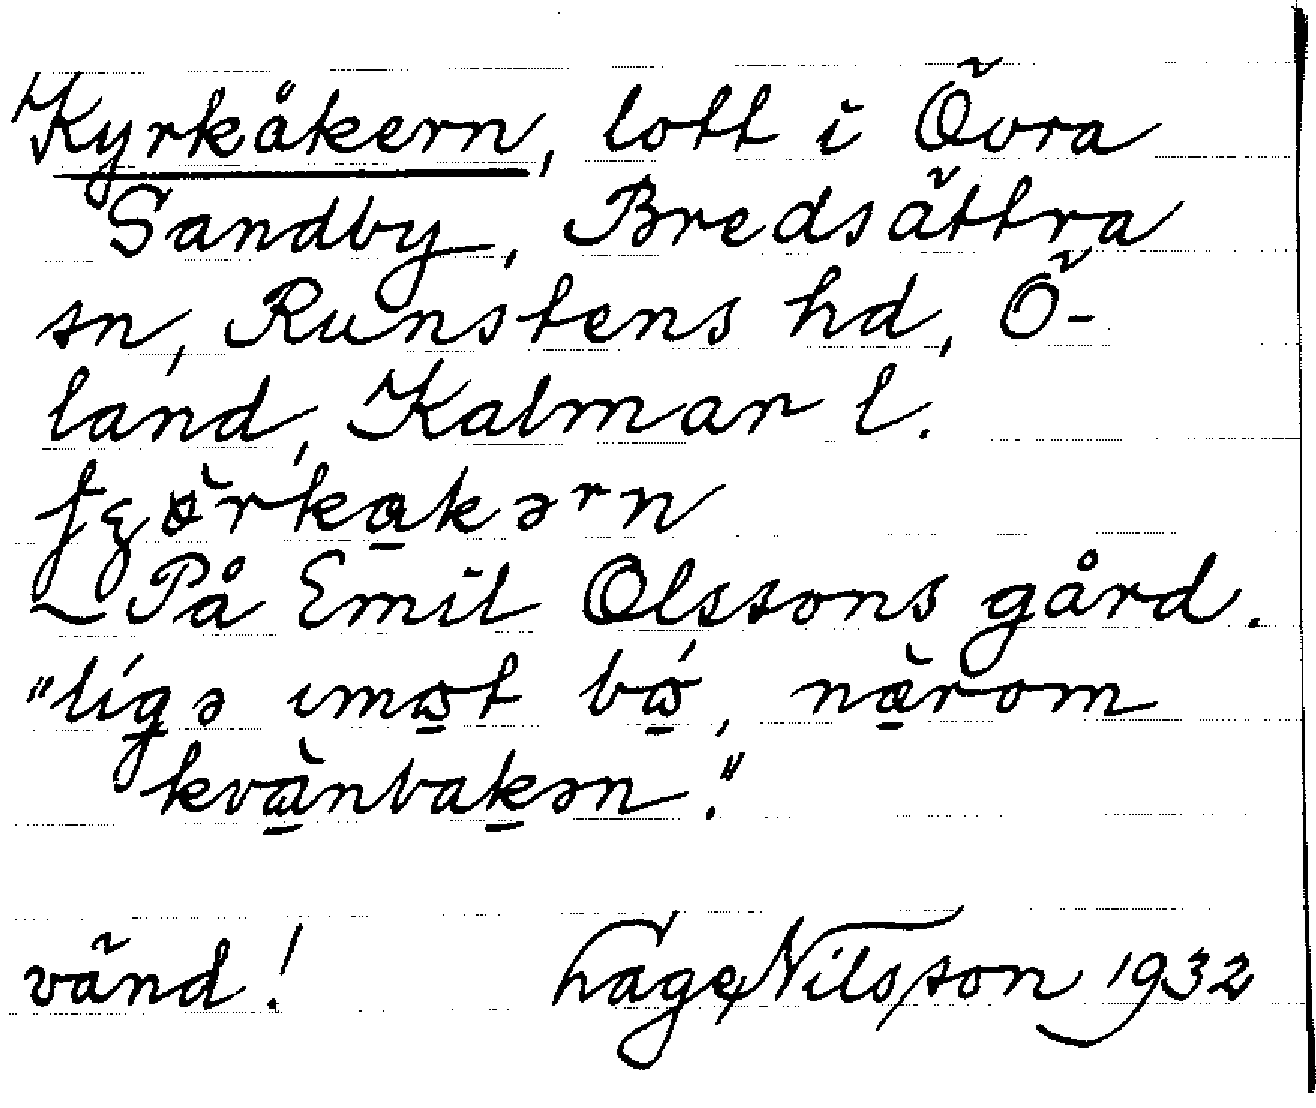 Kyrkåkern, lott i Övra
Sandby, Bredsättra
sn, Runstens hd, Ö-
land, Kalmar l.
På Emil Olssons gård.
"lígə ımɷt bɷ́, næ̀rom
kvæ̀nbakən."
vänd! Lage Nilsson 1932